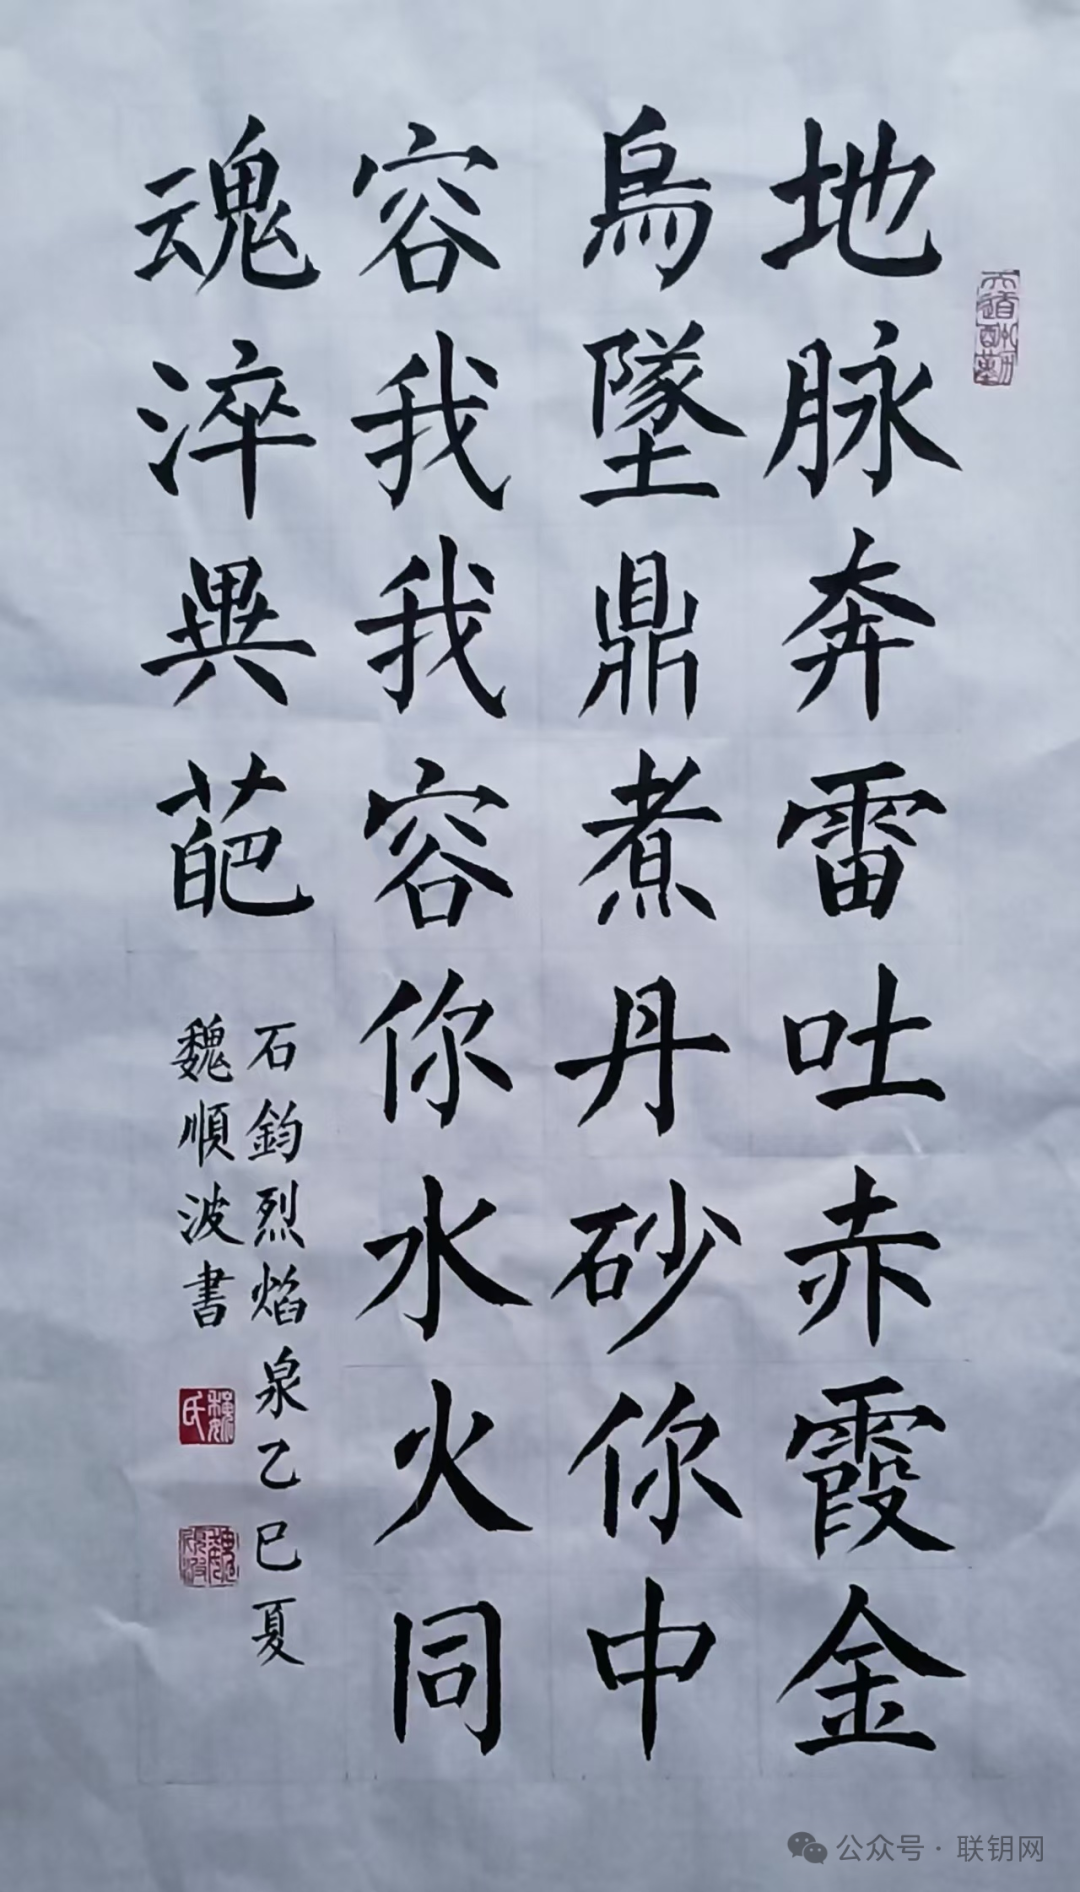 地脉奔雷吐赤霞金
烏墜鼎煮丹砂你中
容我我容你水火同
魂淬異葩
石鈞烈焰泉乙巳夏
魏順波書
天道酬勤
魏氏
公众号·联钥网